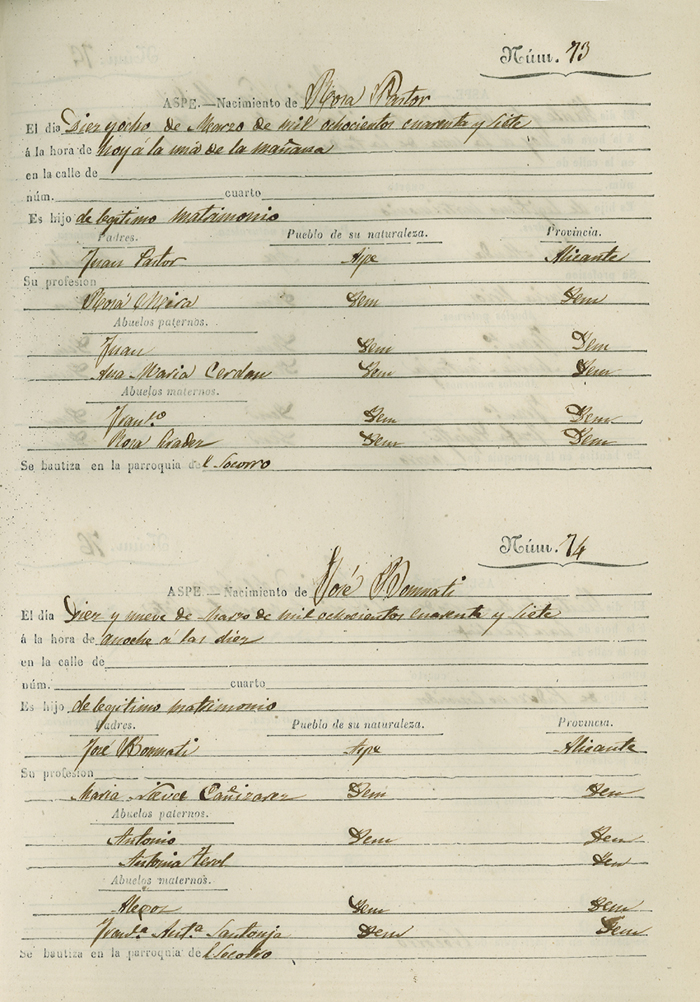 Núm. 73
ASPE.—Nacimiento de Rosa Pastor
El dia Diez y ocho de Marzo de mil ochocientos cuarenta y siete
á la hora de hoy á la una de la mañana
en la calle de
núm. cuarto
Es hijo de legitimo matrimonio
Padres. Pueblo de su naturaleza. Provincia.
Juan Pastor Aspe Alicante
Su profesion
Rosa Mira Idem Idem
Abuelos paternos.
Juan Idem Idem
Ana Maria Cerdan Idem Idem
Abuelos maternos.
Fran.co Idem Idem
Rosa Idem Idem
Se bautiza en la parroquia del Socorro
Núm. 74
ASPE.—Nacimiento de José Bonmati
El día Diez y nueve de Marzo de mil ochocientos cuarenta y siete
á la hora de anoche á las diez
en la calle de
núm. cuarto
Es hijo de legitimo matrimonio
Padres. Pueblo de su naturaleza. Provincia.
José Bonmati Aspe Alicante
Su profesion
Maria Cañizarez Idem Idem
Abuelos paternos.
Antonio Idem Idem
Antonia Terol Idem
Abuelos maternos.
Idem Idem
Fran.ca Ant.a Santonja Idem Idem
Se bautiza en la parroquia de l Socorro